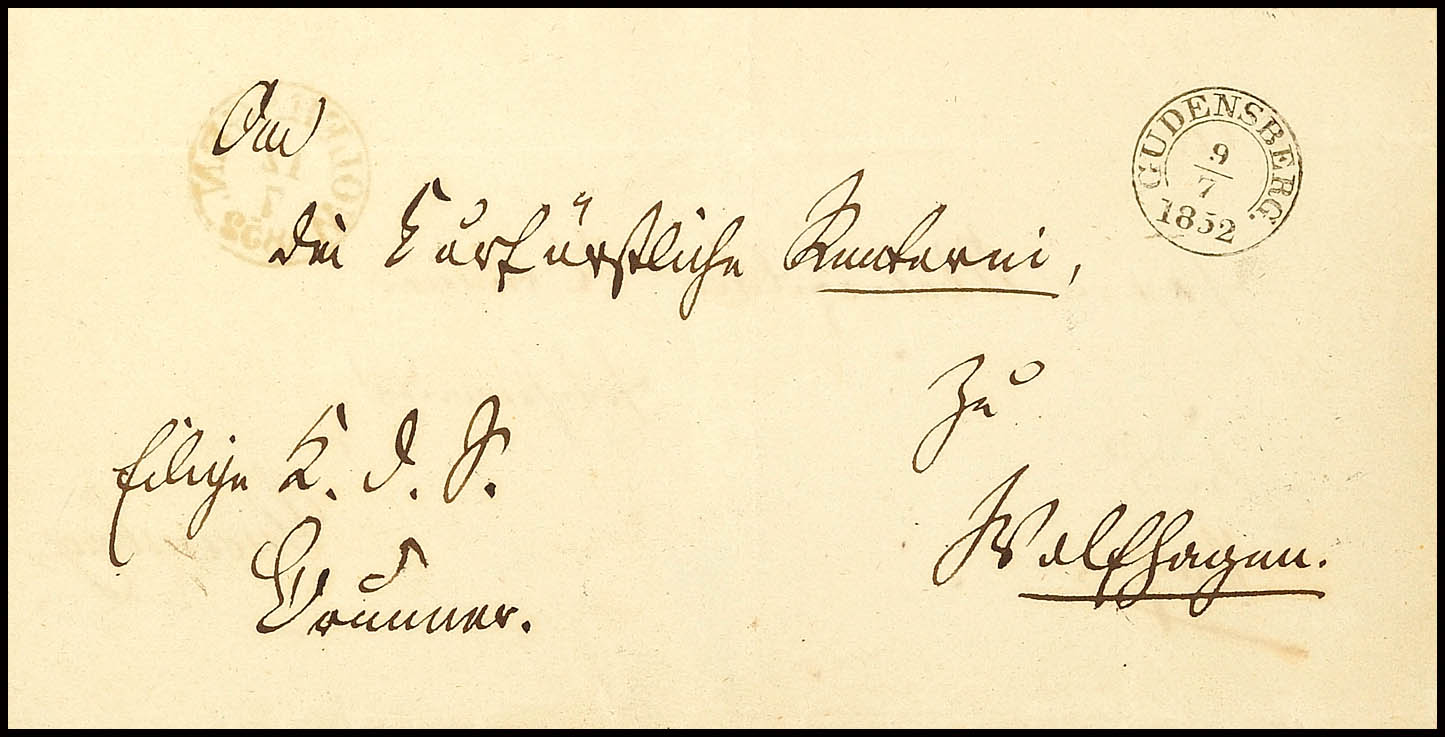 An
die Kurfürstliche Renterei,
zu
Wolfhagen.
Eilige K. d. S.
Brunner.
GUDENSBERG.
9
7
1852